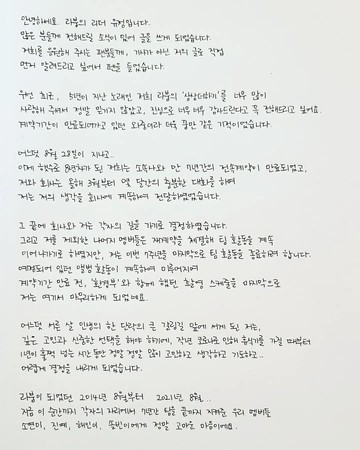 안녕하세요. 라붐의 리더 유정입니다.
많은 분들께 전해드릴 소식이 있어 글을 쓰게 되었습니다.
저희를 응원해 주시는 팬분들께, 기사가 아닌 저의 글로 직접
먼저 알려드리고 싶어서 펜을 들었습니다.
우선 최근, 5년이 지난 노래인 저희 라붐의 '상상더하기'를 너무 많이
사랑해 주셔서 정말 믿기지 않았고, 진심으로 너무너무 감사드린다고 꼭 전해드리고 싶어요.
계약기간이 만료되어가고 있던 와중이라 더욱 꿈만 같은 기적이었습니다.
어느덧 8월 28일이 지나고..
이제 햇수로 8년차가 된 저희는 소속사와 만 7년간의 전속계약이 만료되었고,
저와 회사는 올해 3월부터 몇 달간의 충분한 대화를 하며
저는 저의 생각을 회사에 계속하여 전달하였습니다.
그 끝에 회사와 저는 각자의 길을 가기로 결정하였습니다.
그리고 저를 제외한 나머지 멤버들은 재계약을 체결해 팀 활동을 계속
이어나가기로 하였지만, 저는 이번 7주년을 마지막으로 팀 활동을 종료하려 합니다.
예정되어 있던 앨범 활동이 계속하여 미루어지며
계약기간 만료 전, '환경부'와 함께 했던 촬영 스케줄을 마지막으로
저는 여기서 마무리하게 되었네요.
어느덧 서른 살 인생의 한 단락의 큰 갈림길 앞에 서게 된 저는,
깊은 고민과 신중한 선택을 해야 하기에, 작년 코로나로 인해 휴식기를 가질 때부터
1년이 훌쩍 넘는 시간 동안 정말 정말 많이 고민하고 생각하고 기도하고..
어렵게 결정을 내리게 되었습니다.
라붐이 되었던 2014년 8월부터 2021년 8월..
지금 이 순간까지 각자의 자리에서 7년간 팀을 끝까지 지켜준 우리 멤버들
소연이, 진예, 해인이, 솔빈이에게 정말 고마운 마음이에요..